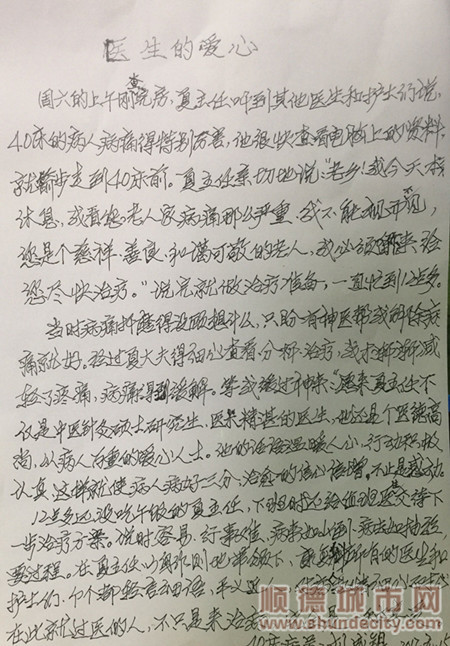 医生的爱心
周六的上午刚查完房,夏主任听到其他医生和护士们说,
40床的病人病痛得特别厉害,他很快查看电脑上的资料,
就移步走到40床前。夏主任亲切地说:"老乡!我今天本
休息,我看您老人家病痛那么严重,我不能视而不见,
您是个慈祥、善良、和蔼可敬的老人,我必须留下来,给
您尽快治疗。"说完就做治疗准备,一直忙到12点多。
当时病痛折磨得没敢想什么,只盼有神医帮我解除病
痛就好。经过夏大夫得细心查看分析治疗,我才渐渐减
轻了疼痛,病痛得到缓解。等我缓过神来:"原来夏主任不
仅是中医针灸硕士研究生,医术精湛的医生,他还是个医德高
尚,以病人为重的爱心人士。他的话语温暖人心,行动积极
认真,这样就使病人病好三分,治愈的信心倍增。不止是感动。
12点多还没吃午饭的夏主任,下班时还给值班医生交待下
一步治疗方案。说时容易,行事难,病来如山倒,病去如抽丝,
要过程。在夏主任以身作则地带领下,所有的医生和
护士们,个个都轻言细语,
在此就过医的人,不只是来治
40床病
顺德城市网
www.shundecity.com